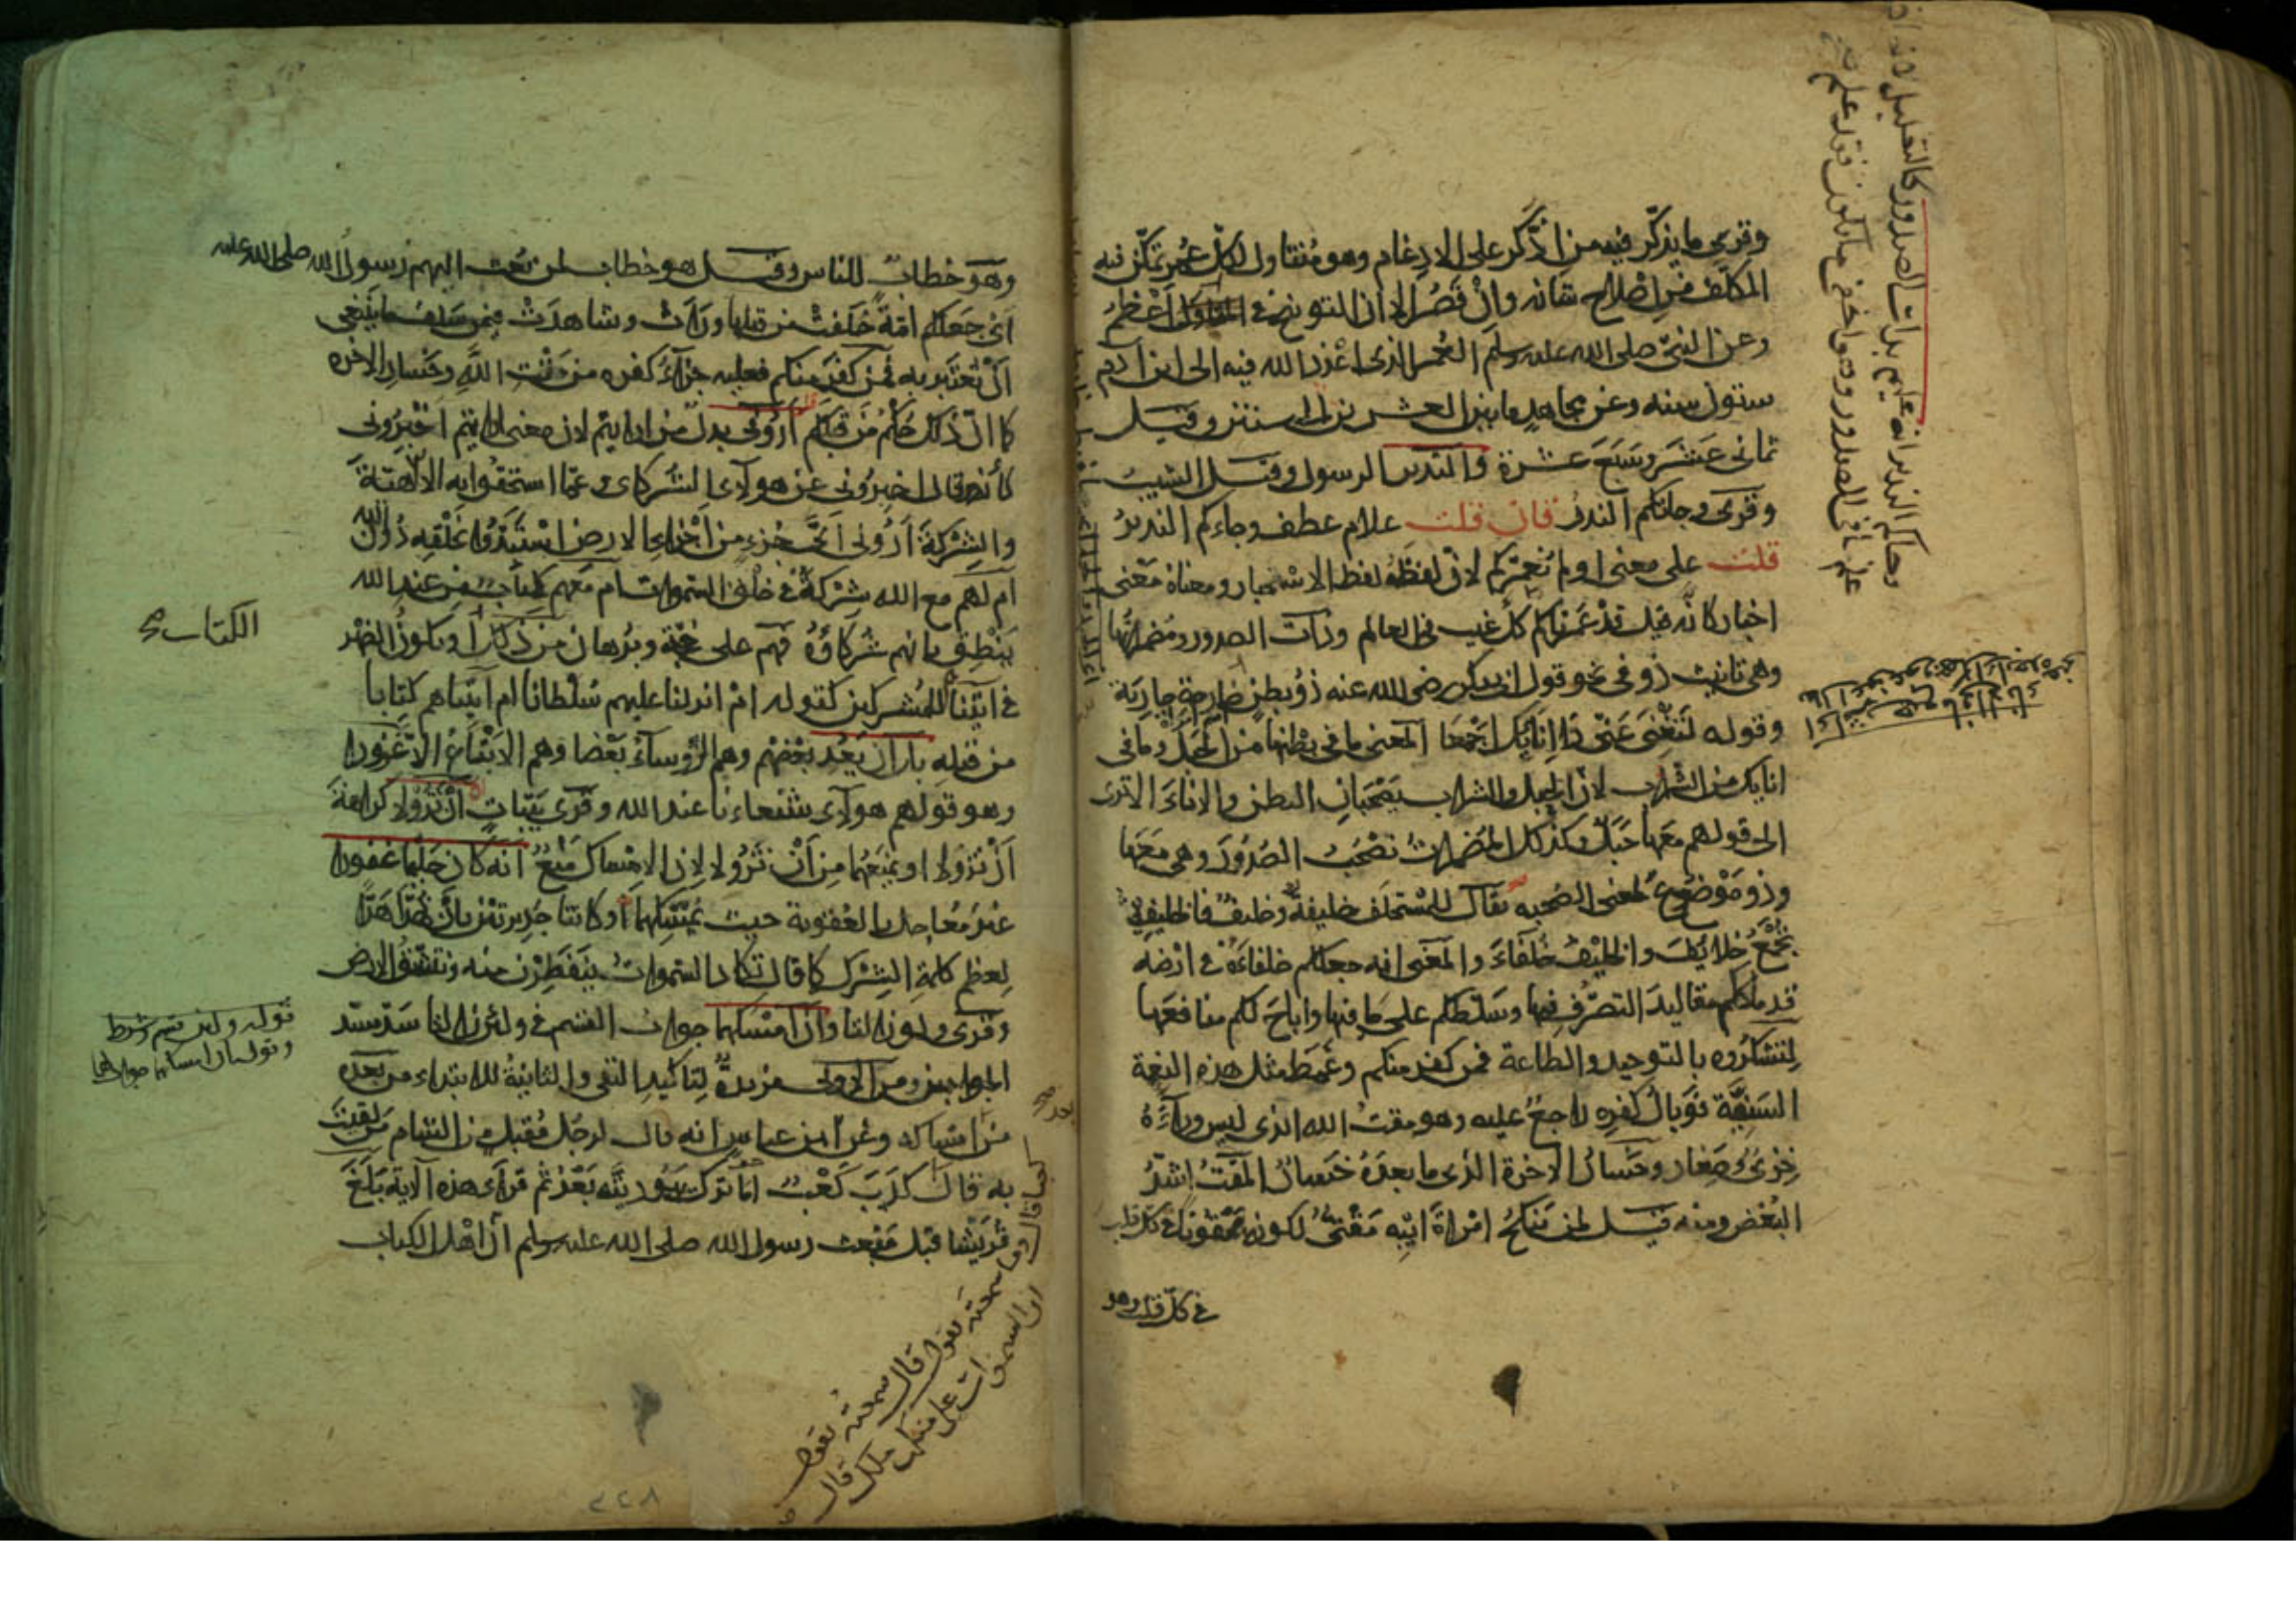 وقرئ ما يذكر فيه من اذكر على الادغام وهو متناول لكل عمر تمكن فيه
المكلف من اصلاح شانه وان قصر الا ان التوبيخ في المتطاول اعظم
وعن النبي صلى الله عليه وسلم العمر الذي اعذر الله فيه الى ابن آدم
ستون سنه وعن مجاهد ما بين العشرين الى الستين وقيل
ثماني عشر وسبع عشرة والنذير الرسول وقيل الشيب
وقرئ وجاتكم النذر فان قلت علام عطف وجاءكم النذير
قلت على معنى اولم نعمركم لان لفظه لفظ الاستخبار ومعناه معنى
اخبار كانه قيل قد عمرناكم كل غيب في العالم وذات الصدور ومضمراتها
وهي تانيث ذو في نحو قول ابي بكر رضي الله عنه ذو بطن خارجة جارية
وقوله لتغني عني ذا انايك اجمعا المعنى ما في بطنها من الحبل وما في
انايك من الشراب لان الحبل والشراب يصحبان البطن والاناء الا ترى
الى قولهم معها حبل وكذلك المضمرات تصحب الصدور وهي معها
وذو موضوع لمعنى الصحبه يقال للمستخلف خليفة وخليف فالخليفة
تجمع خلائف والخليف خلفاء والمعنى انه جعلكم خلفاءه في ارضه
قد ملككم مقاليد التصرف فيها وسلطكم على ما فيها واباح لكم منافعها
لتشكروه بالتوحيد والطاعة فمن كفر منكم وغمط مثل هذه النعمة
السنية فوبال كفره راجع عليه وهو مقت الله الذي ليس وراءه
خزي وصغار وخسار الاخرة الذي ما بعده خسار المقت اشد
البغض ومنه قيل لمن ينكح امراة ابيه مقتي لكونه ممقوتا في كل قلب
في كل قلب وهو
وهو خطاب للناس وقيل هو خطاب لمن بعث اليهم رسول الله صلى الله عليه
اي جعلكم امة خلفت من قبلها ورات وشاهدت فيمن سلف ما ينبغي
ان تعتبر به فمن كفر منكم فعليه جزاء كفره من مقت الله وخسار الاخره
كما ان ذلك حكم من قبلكم اروني بدل من ارايتم لان معنى ارايتم اخبروني
كانه قال اخبروني عن هولاء الشركاء وعما استحقوا به الالهية
والشركة اروني اي جزء من اجزاء الارض استبدوا بخلقه دون الله
ام لهم مع الله شركة في خلق السموات ام معهم كتاب من عند الله
ينطق بانهم شركاؤه فهم على حجة وبرهان من ذلك او يكون الضمير
الكتاب صح
في آتينا للمشركين كقوله ام انزلنا عليهم سلطانا ام آتيناهم كتابا
من قبله بل ان يعد بعضهم وهم الرؤساء بعضا وهم الاتباع الا غرورا
وهو قولهم هولاء شفعاءنا عند الله وقرئ بينات ان تزولا كراهة
ان تزولا او يمنعهما من ان تزولا لان الامساك منع انه كان حليما غفورا
غير معاجل بالعقوبة حيث يمسكهما وكانتا جديرتين بان تهدا هدا
لعظم كلمة الشرك كما قال تكاد السموات يتفطرن منه وتنشق الارض
وقرئ ولو زالتا وان امسكهما جواب القسم في ولئن زالتا سد مسد
قوله ولئن قسم وشرط
وقوله ان امسكهما جوابها
الجوابين ومن الاولى مزيدة لتاكيد النفي والثانية للابتداء من بعده
من بعد امساكه وعن ابن عباس انه قال لرجل مقبل من الشام من لقيت
به قال كذب كعب اما ترك يهوديته بعد ثم قرأ هذه الآية بلغ
قريشا قبل مبعث رسول الله صلى الله عليه وسلم ان اهل الكتاب
كعبا قال وما سمعته يقول قال سمعته يقول
ان السموات على منكب ملك قال
٢٢٨